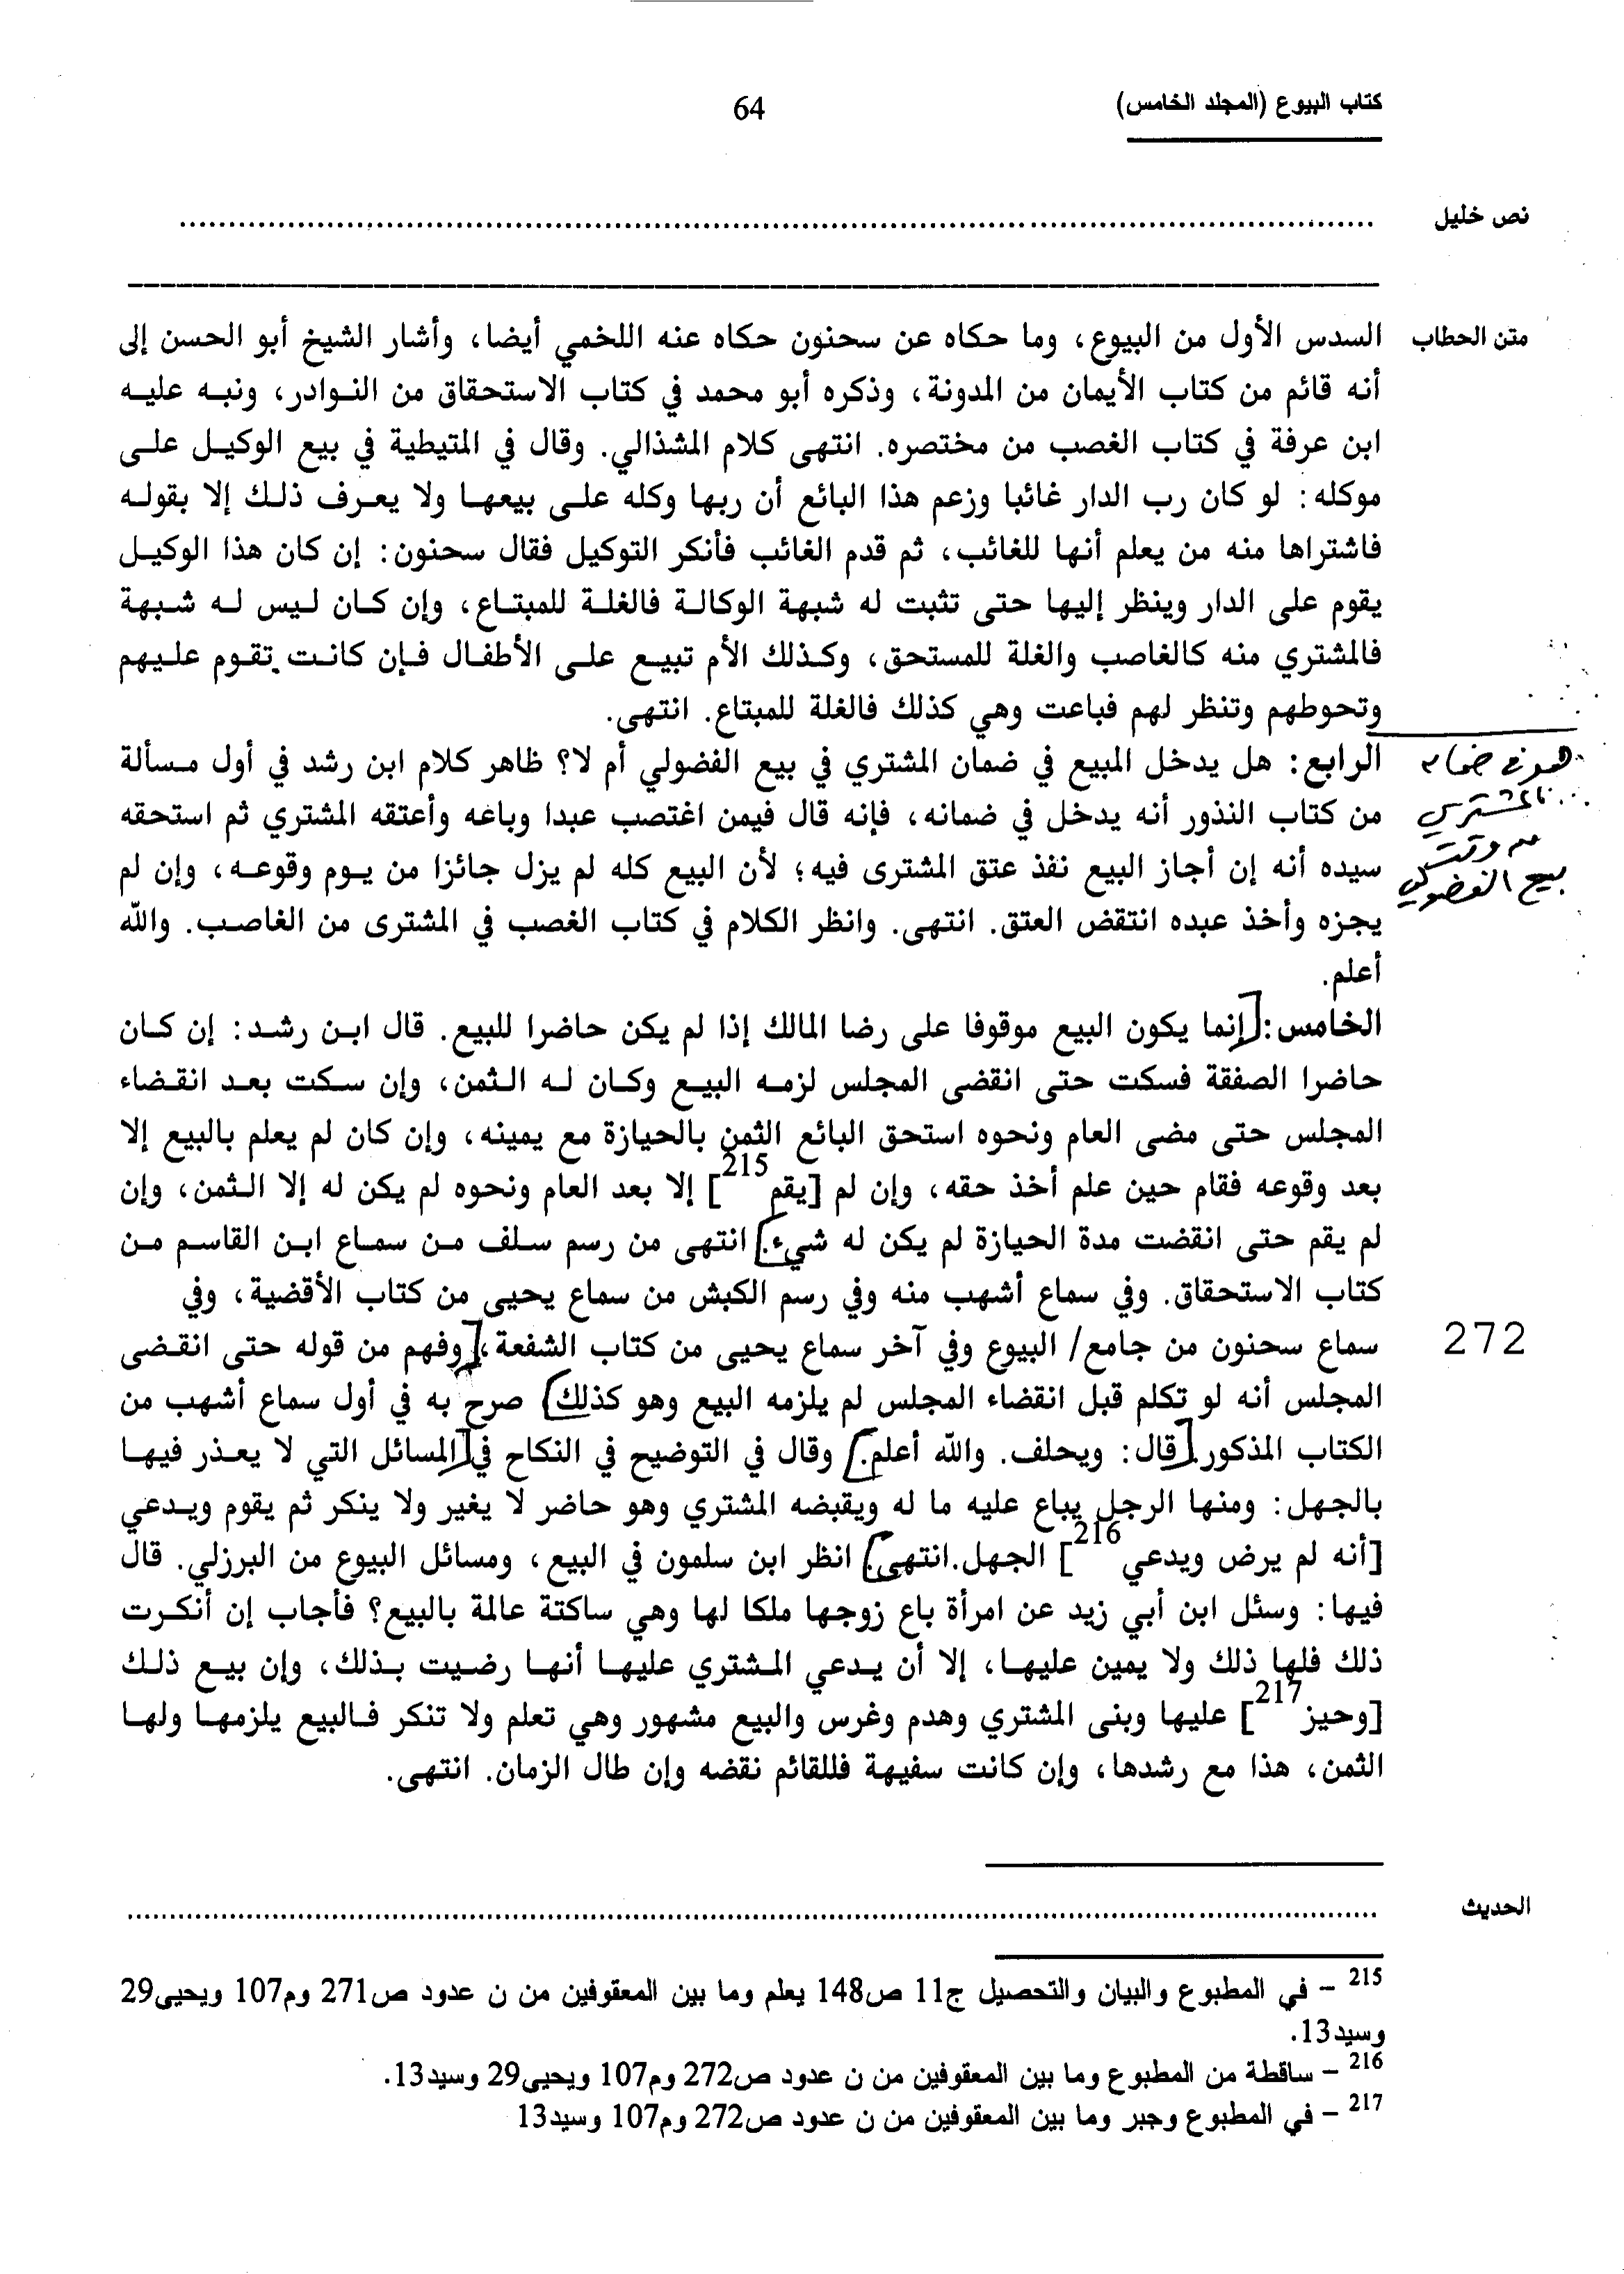 كتاب البيوع (المجلد الخامس)
64
نص خليل
متن الحطاب
السدس الأول من البيوع، وما حكاه عن سحنون حكاه عنه اللخمي أيضا، وأشار الشيخ أبو الحسن إلى
أنه قائم من كتاب الأيمان من المدونة، وذكره أبو محمد في كتاب الاستحقاق من النوادر، ونبه عليه
ابن عرفة في كتاب الغصب من مختصره. انتهى كلام المشذالي. وقال في المتيطية في بيع الوكيل على
موكله: لو كان رب الدار غائبا وزعم هذا البائع أن ربها وكله على بيعها ولا يعرف ذلك إلا بقوله
فاشتراها منه من يعلم أنها للغائب، ثم قدم الغائب فأنكر التوكيل فقال سحنون: إن كان هذا الوكيل
يقوم على الدار وينظر إليها حتى تثبت له شبهة الوكالة فالغلة للمبتاع، وإن كان ليس له شبهة
فالمشتري منه كالغاصب والغلة للمستحق، وكذلك الأم تبيع على الأطفال فإن كانت تقوم عليهم
وتحوطهم وتنظر لهم فباعت وهي كذلك فالغلة للمبتاع. انتهى.
الرابع: هل يدخل المبيع في ضمان المشتري في بيع الفضولي أم لا؟ ظاهر كلام ابن رشد في أول مسألة
من كتاب النذور أنه يدخل في ضمانه، فإنه قال فيمن اغتصب عبدا وباعه وأعتقه المشتري ثم استحقه
سيده أنه إن أجاز البيع نفذ عتق المشترى فيه؛ لأن البيع كله لم يزل جائزا من يوم وقوعه، وإن لم
يجزه وأخذ عبده انتقض العتق. انتهى. وانظر الكلام في كتاب الغصب في المشترى من الغاصب. والله
أعلم.
المشتري
بيع الفضولي
الخامس: [إنما يكون البيع موقوفا على رضا المالك إذا لم يكن حاضرا للبيع. قال ابن رشد: إن كان
حاضرا الصفقة فسكت حتى انقضى المجلس لزمه البيع وكان له الثمن، وإن سكت بعد انقضاء
المجلس حتى مضى العام ونحوه استحق البائع الثمن بالحيازة مع يمينه، وإن كان لم يعلم بالبيع إلا
بعد وقوعه فقام حين علم أخذ حقه، وإن لم [يقم215] إلا بعد العام ونحوه لم يكن له إلا الثمن، وإن
لم يقم حتى انقضت مدة الحيازة لم يكن له شيء.] انتهى من رسم سلف من سماع ابن القاسم من
كتاب الاستحقاق. وفي سماع أشهب منه وفي رسم الكبش من سماع يحيى من كتاب الأقضية، وفي
272
سماع سحنون من جامع/ البيوع وفي آخر سماع يحيى من كتاب الشفعة، [وفهم من قوله حتى انقضى
المجلس أنه لو تكلم قبل انقضاء المجلس لم يلزمه البيع وهو كذلك] صرح به في أول سماع أشهب من
الكتاب المذكور. [قال: ويحلف. والله أعلم.] وقال في التوضيح في النكاح في [المسائل التي لا يعذر فيها
بالجهل: ومنها الرجل يباع عليه ما له ويقبضه المشتري وهو حاضر لا يغير ولا ينكر ثم يقوم ويدعي
[أنه لم يرض ويدعي216] الجهل.انتهى.] انظر ابن سلمون في البيع، ومسائل البيوع من البرزلي. قال
فيها: وسئل ابن أبي زيد عن امرأة باع زوجها ملكا لها وهي ساكتة عالمة بالبيع؟ فأجاب إن أنكرت
ذلك فلها ذلك ولا يمين عليها، إلا أن يدعي المشتري عليها أنها رضيت بذلك، وإن بيع ذلك
[وحيز217] عليها وبنى المشتري وهدم وغرس والبيع مشهور وهي تعلم ولا تنكر فالبيع يلزمها ولها
الثمن، هذا مع رشدها، وإن كانت سفيهة فللقائم نقضه وإن طال الزمان. انتهى.
الحديث
215 – في المطبوع والبيان والتحصيل ج11 ص148 يعلم وما بين المعقوفين من ن عدود ص271 وم107 ويحيى29
وسيد13.
216 – ساقطة من المطبوع وما بين المعقوفين من ن عدود ص272 وم107 ويحيى29 وسيد13.
217 – في المطبوع وجبر وما بين المعقوفين من ن عدود ص272 وم107 وسيد13